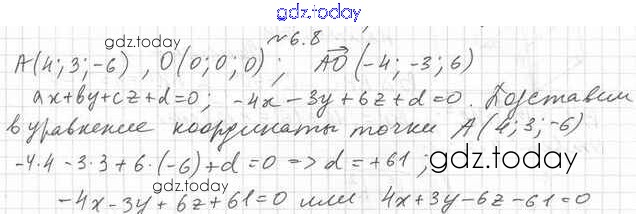 gdz.today
№6.8
gdz.today
A(4; 3; -6), O(0; 0; 0); AO→(-4; -3; 6)
ax+by+cz+d=0; -4x-3y+6z+d=0. Подставим
в уравнение координаты точки A(4; 3; -6)
gdz.today
-4·4-3·3+6·(-6)+d=0 => d=+61;
gdz.today
-4x-3y+6z+61=0 или 4x+3y-6z-61=0